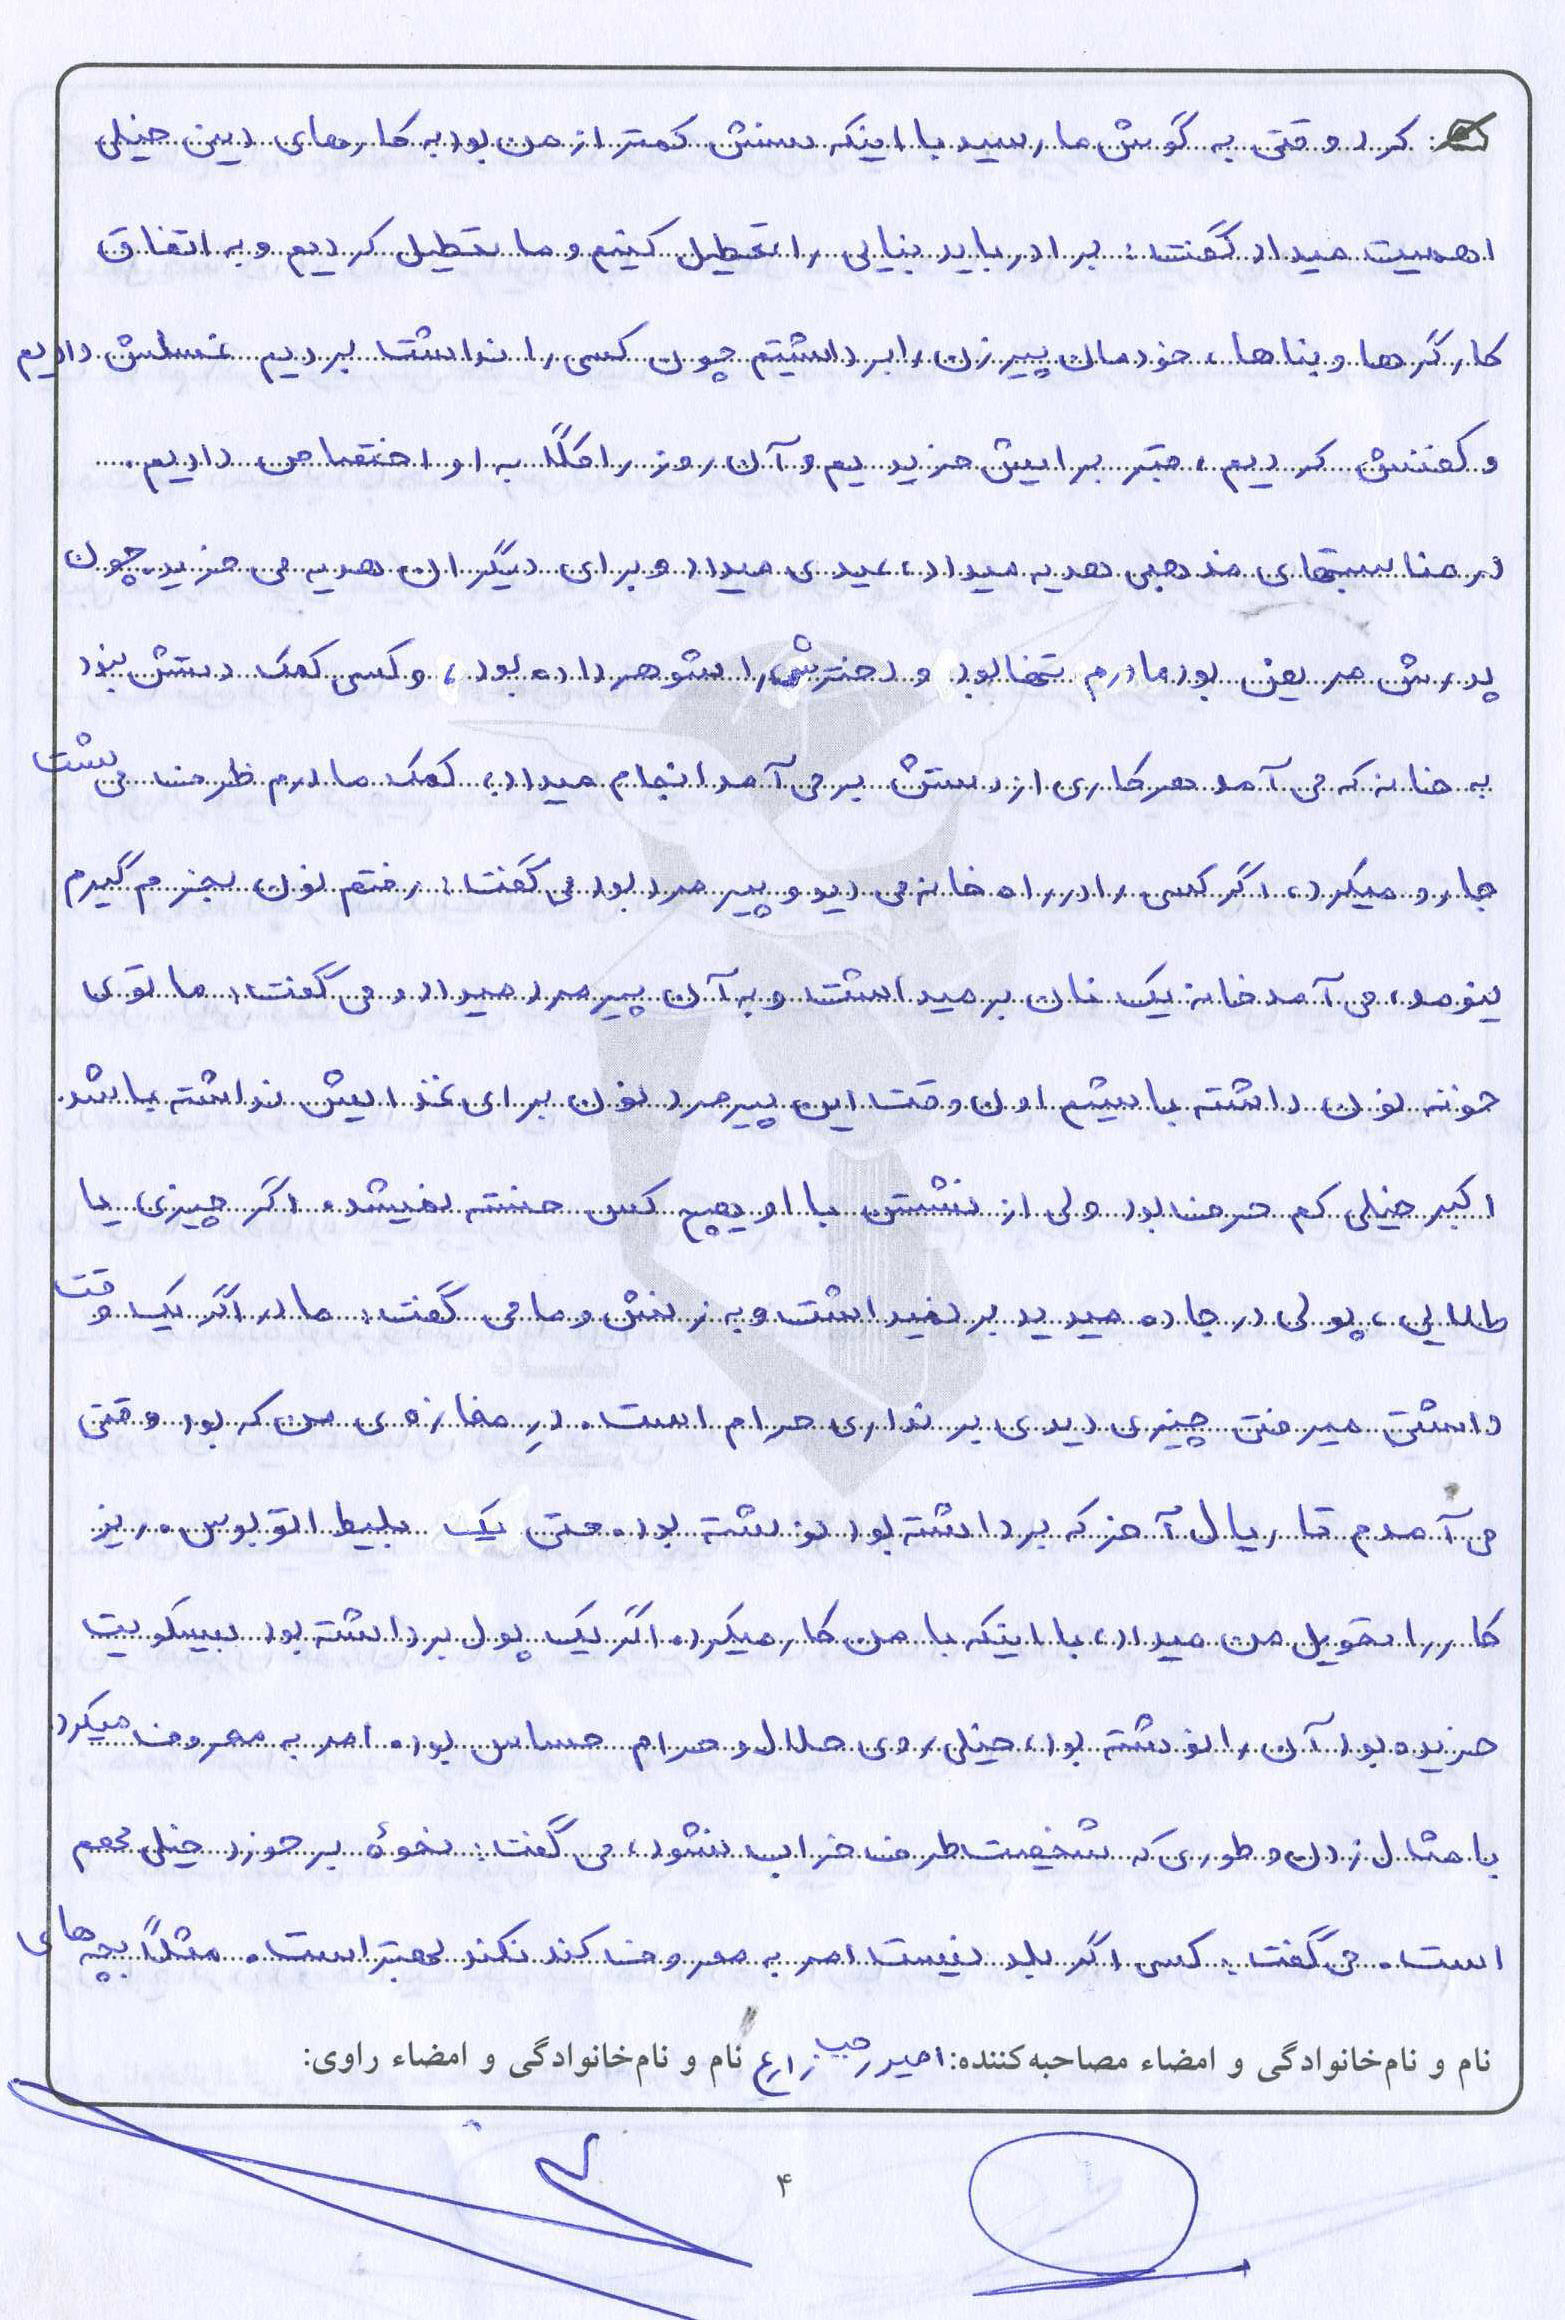 کرد وقتی به گوش ما رسید با اینکه سنش کمتر از من بود به کارهای دین خیلی
اهمیت میداد گفت: برادر باید بنایی را تعطیل کنیم و ما تعطیل کردیم و به اتفاق
کارگرها و بناها، خودمان پیرزن را برداشتیم چون کسی را نداشت بردیم غسلش دادیم
و کفنش کردیم، قبر برایش خریدیم و آن روز را کلاً به او اختصاص دادیم.
در مناسبتهای مذهبی هدیه میداد، عیدی میداد و برای دیگران هدیه می خرید. چون
پدرش مریض بود مادرم تنها بود و دخترش را شوهر داده بود، و کسی کمک دستش نبود
به خانه که می آمد هر کاری از دستش بر می آمد انجام میداد، کمک مادرم ظرف می شست
جارو میکرد، اگر کسی را در راه خانه می دید و پیرمرد بود می گفت: رفتم نون بخرم گیرم
نیومد، می آمد خانه یک نان برمیداشت و به آن پیرمرد میداد و می گفت: ما توی
خونه نون داشته باشیم اون وقت این پیرمرد نون برای غذایش نداشته باشد.
اکبر خیلی کم حرف بود ولی از نشستن با او هیچ کس خسته نمیشد، اگر چیزی یا
طلایی، پولی در جاده میدید بر نمیداشت و به زنش و ما می گفت: مادر اگر یک وقت
داشتی میرفتی چیزی دیدی بر نداری حرام است. درِ مغازه ی من که بود وقتی
می آمدم تا ریال آخر که برداشته بود نوشته بود. حتی یک بلیط اتوبوس. ریز
کار را تحویل من میداد، با اینکه با من کار میکرد. اگر یک پول برداشته بود بیسکویت
خریده بود آن را نوشته بود، خیلی روی حلال و حرام حساس بود. امر به معروف میکرد
با مثال زدن و طوری که شخصیت طرف خراب نشود، می گفت: نحوهٔ برخورد خیلی مهم
است. می گفت: کسی اگر بلد نیست امر به معروف کند نکند بهتر است. مثلاً بچه های
نام و نام‌خانوادگی و امضاء مصاحبه‌کننده: امیر رجب زارع نام و نام‌خانوادگی و امضاء راوی:
۴